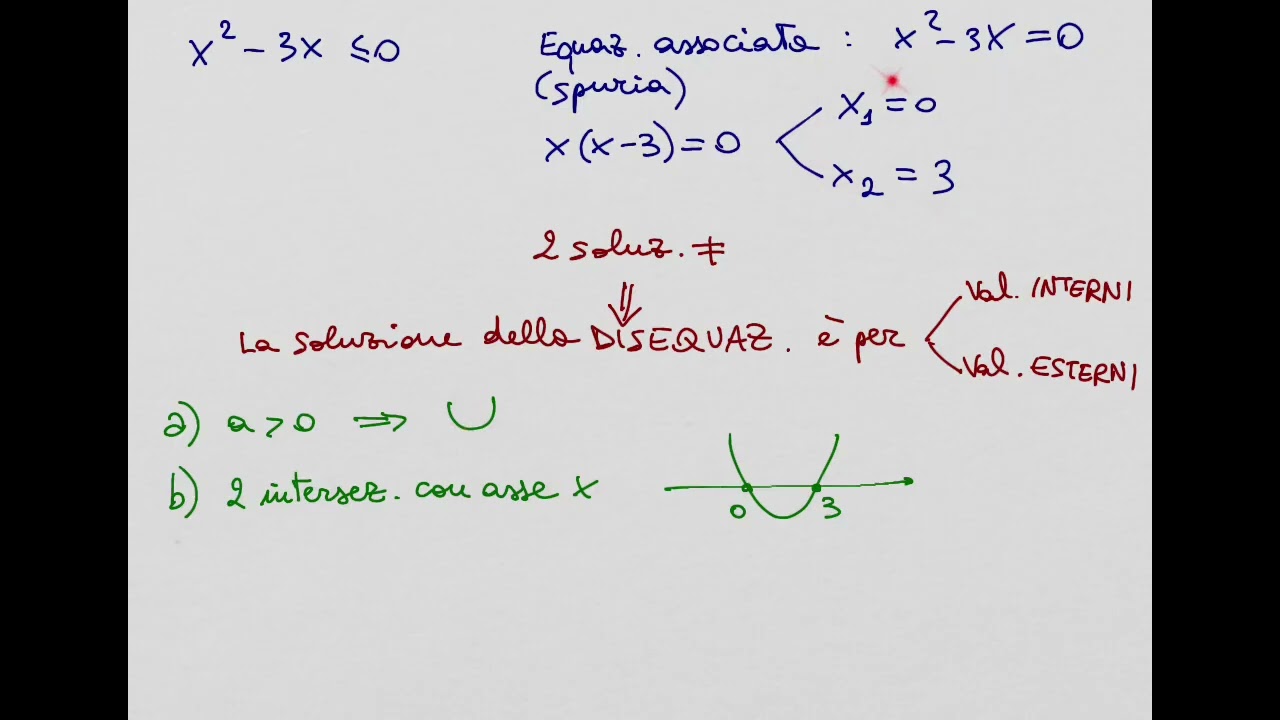 x² - 3x ≤ 0
Equaz. associata : x² - 3x = 0
(spuria)
x(x-3) = 0
x₁ = 0
x₂ = 3
2 soluz. ≠
⇓
La soluzione della DISEQUAZ. è per
Val. INTERNI
Val. ESTERNI
a) a > 0 ⇒ ∪
b) 2 intersez. con asse x
0 3